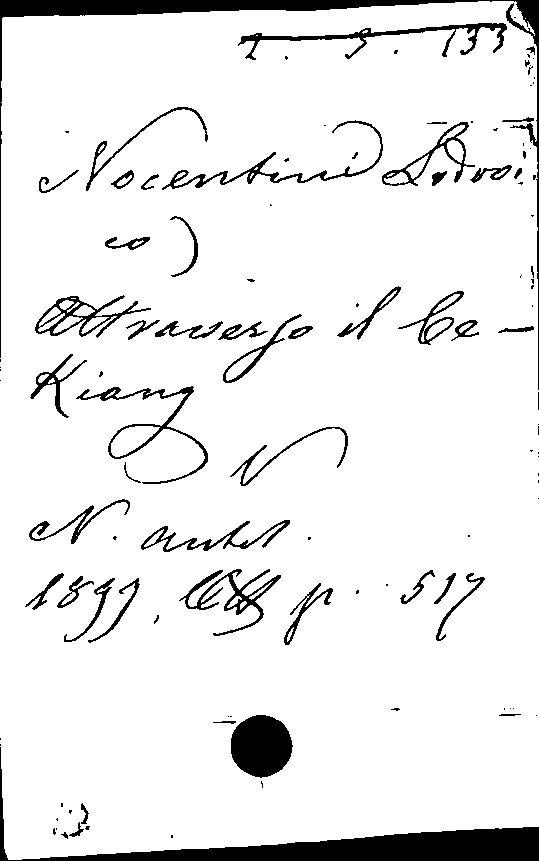 2. 3. 133
Nocentini Lodovi
co)
Attraverso il Ce-
Kiang
N
N. antol.
1899, p. 517